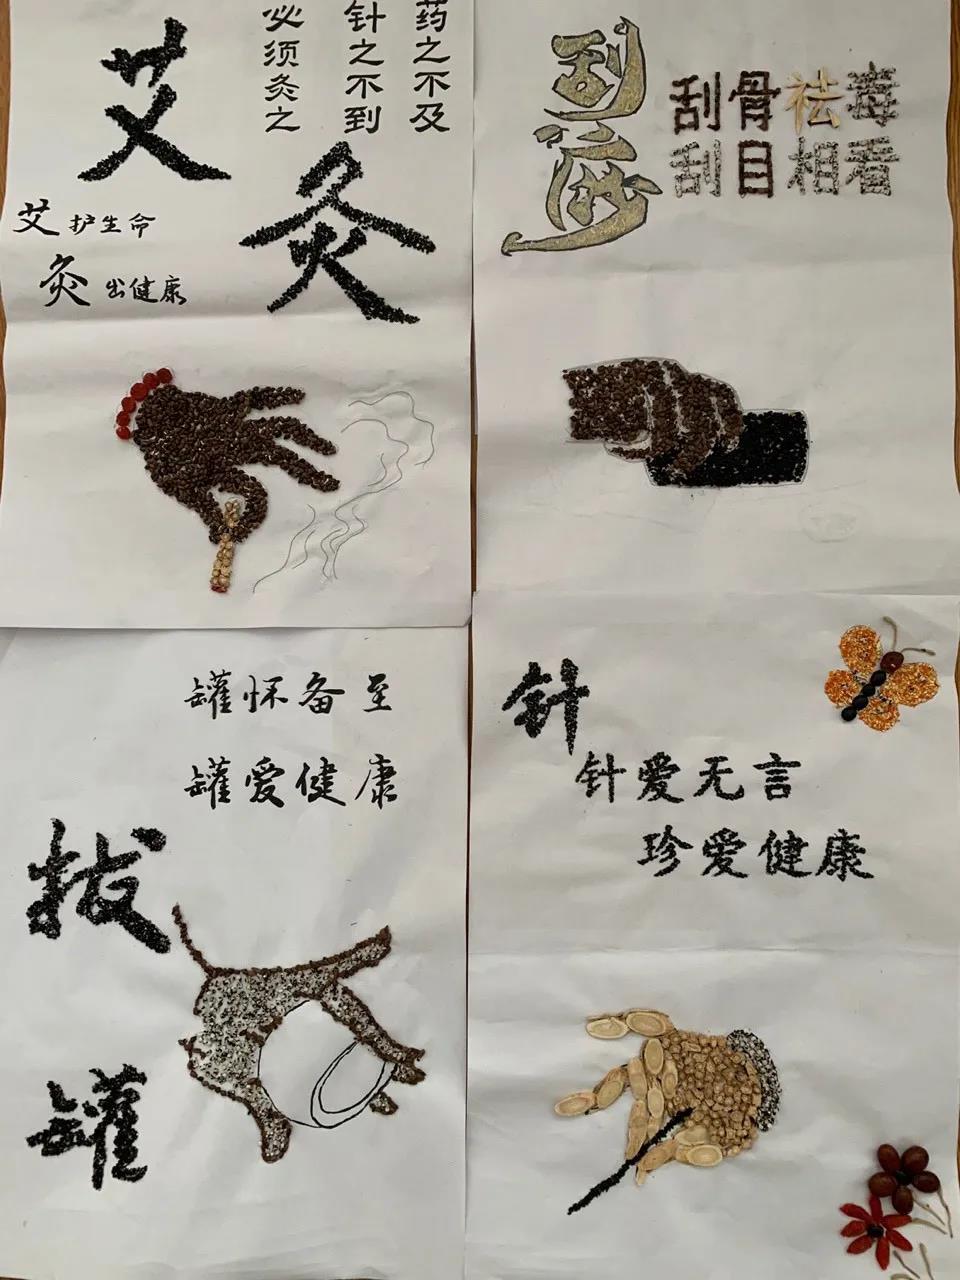 艾灸
药之不及
针之不到
必须灸之
艾护生命
灸出健康
刮痧
刮骨祛毒
刮目相看
罐怀备至
罐爱健康
拔罐
针
针爱无言
珍爱健康